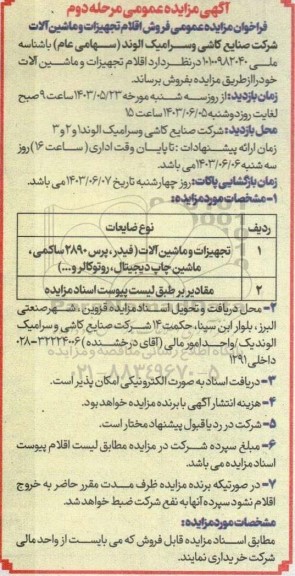 آگهی مزایده عمومی مرحله دوم
فراخوان مزایده عمومی فروش اقلام تجهیزات و ماشین آلات
شرکت صنایع کاشی وسرامیک الوند (سهامی عام) باشناسه
ملی ۱۰۱۰۰۹۸۲۰۴۰ درنظردارد اقلام تجهیزات و ماشین آلات
خودرا ازطریق مزایده بفروش برساند.
زمان بازدید: از روز سه شنبه مورخه ۱۴۰۳/۰۵/۲۳ ساعت ۹ صبح
لغایت روز دوشنبه ۱۴۰۳/۰۶/۰۵ ساعت ۱۵
محل بازدید: شرکت صنایع کاشی وسرامیک الوند۱ و ۲ و ۳
زمان ارائه پیشنهادات : تا پایان وقت اداری (ساعت ۱۶) روز
سه شنبه ۱۴۰۳/۰۶/۰۶ می باشد.
زمان بازگشایی پاکات: روز چهارشنبه تاریخ ۱۴۰۳/۰۶/۰۷ می باشد.
۱- مشخصات مورد مزایده:
ردیف نوع ضایعات
۱ تجهیزات و ماشین آلات (فیدر، پرس ۲۸۹۰ ساکمی،
ماشین چاپ دیجیتال، روتوکالر و...)
۲ مقادیر بر طبق لیست پیوست اسناد مزایده
۲- محل دریافت و تحویل اسناد مزایده قزوین، شهر صنعتی
البرز، بلوار ابن سینا، حکمت ۱۴ شرکت صنایع کاشی و سرامیک
الوند یک /واحد امور مالی (آقای درخشنده) ۳۲۲۲۴۰۰۶-۰۲۸
داخلی ۱۲۹۱
۳- دریافت اسناد به صورت الکترونیکی امکان پذیر است.
۴- هزینه انتشار آگهی با برنده مزایده خواهد بود.
۵- شرکت در رد یا قبول پیشنهاد مختار است.
۶- مبلغ سپرده شرکت در مزایده مطابق لیست اقلام پیوست
اسناد مزایده می باشد.
۷- در صورتیکه برنده مزایده ظرف مدت مقرر حاضر به خروج
اقلام نشود سپرده آنها به نفع شرکت ضبط خواهد شد.
مشخصات مورد مزایده:
مطابق اسناد مزایده قابل فروش که می بایست از واحد مالی
شرکت خریداری نمایند.